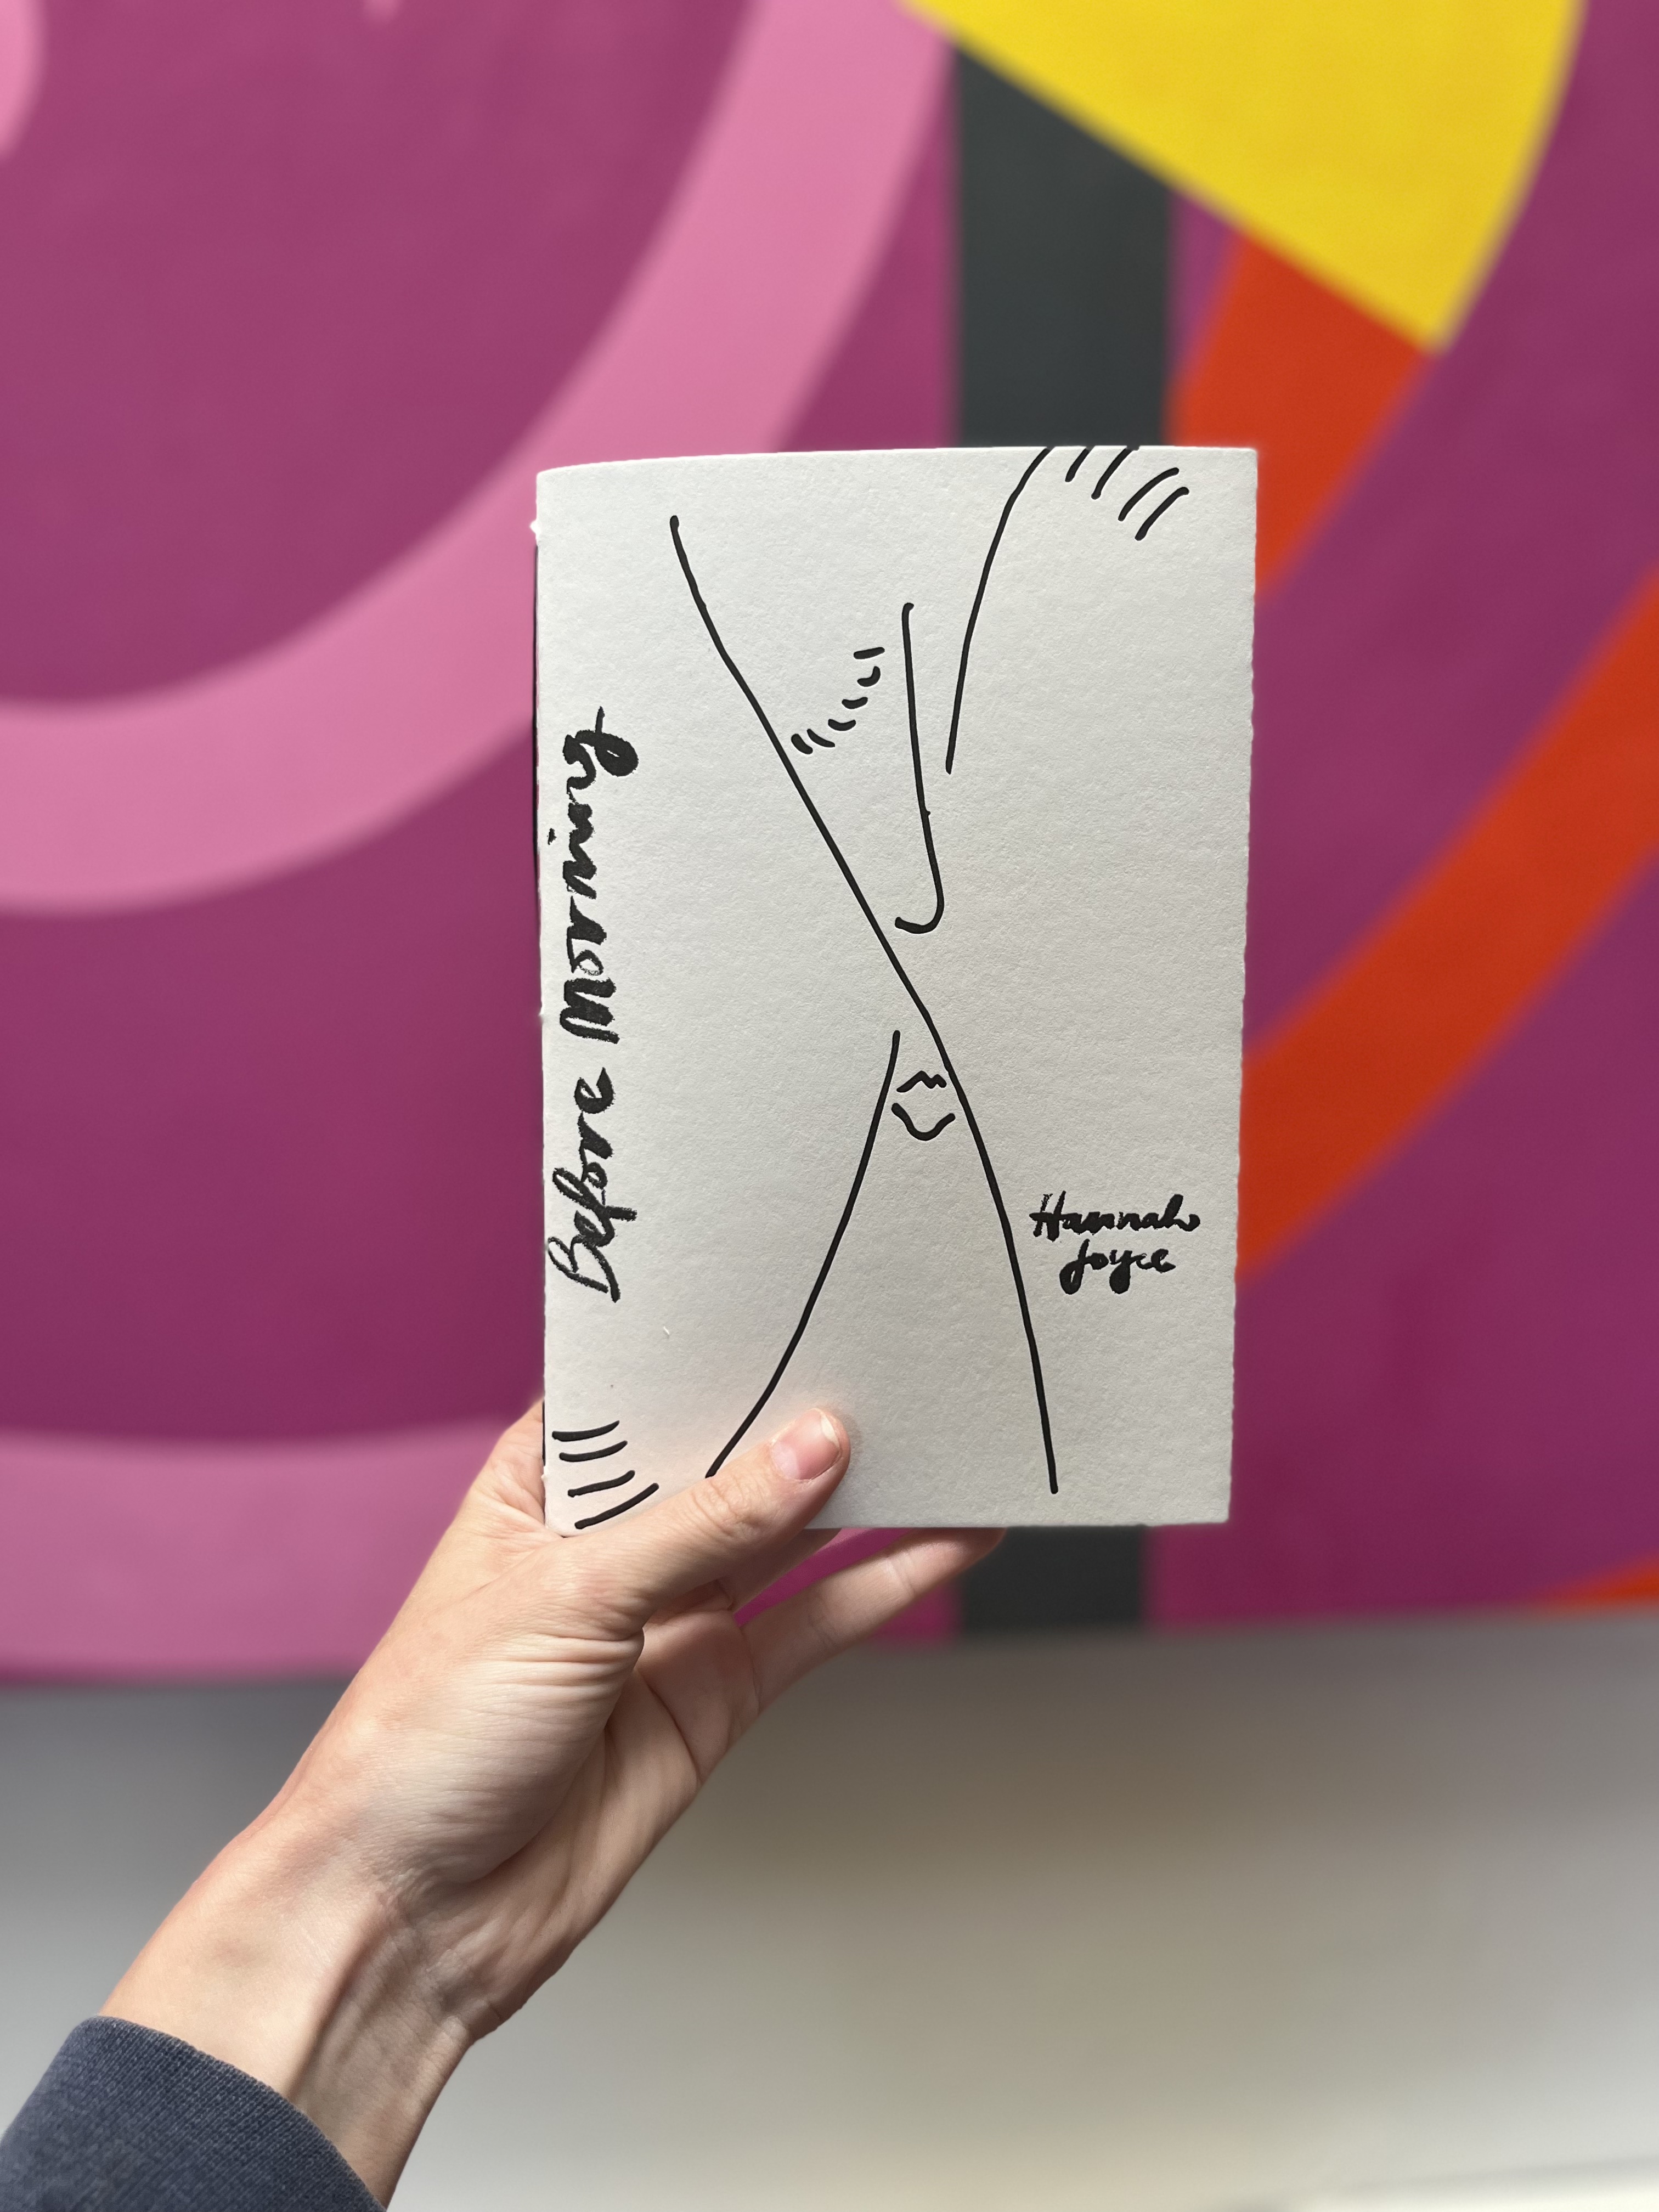 Before Morning
Hannah
Joyce